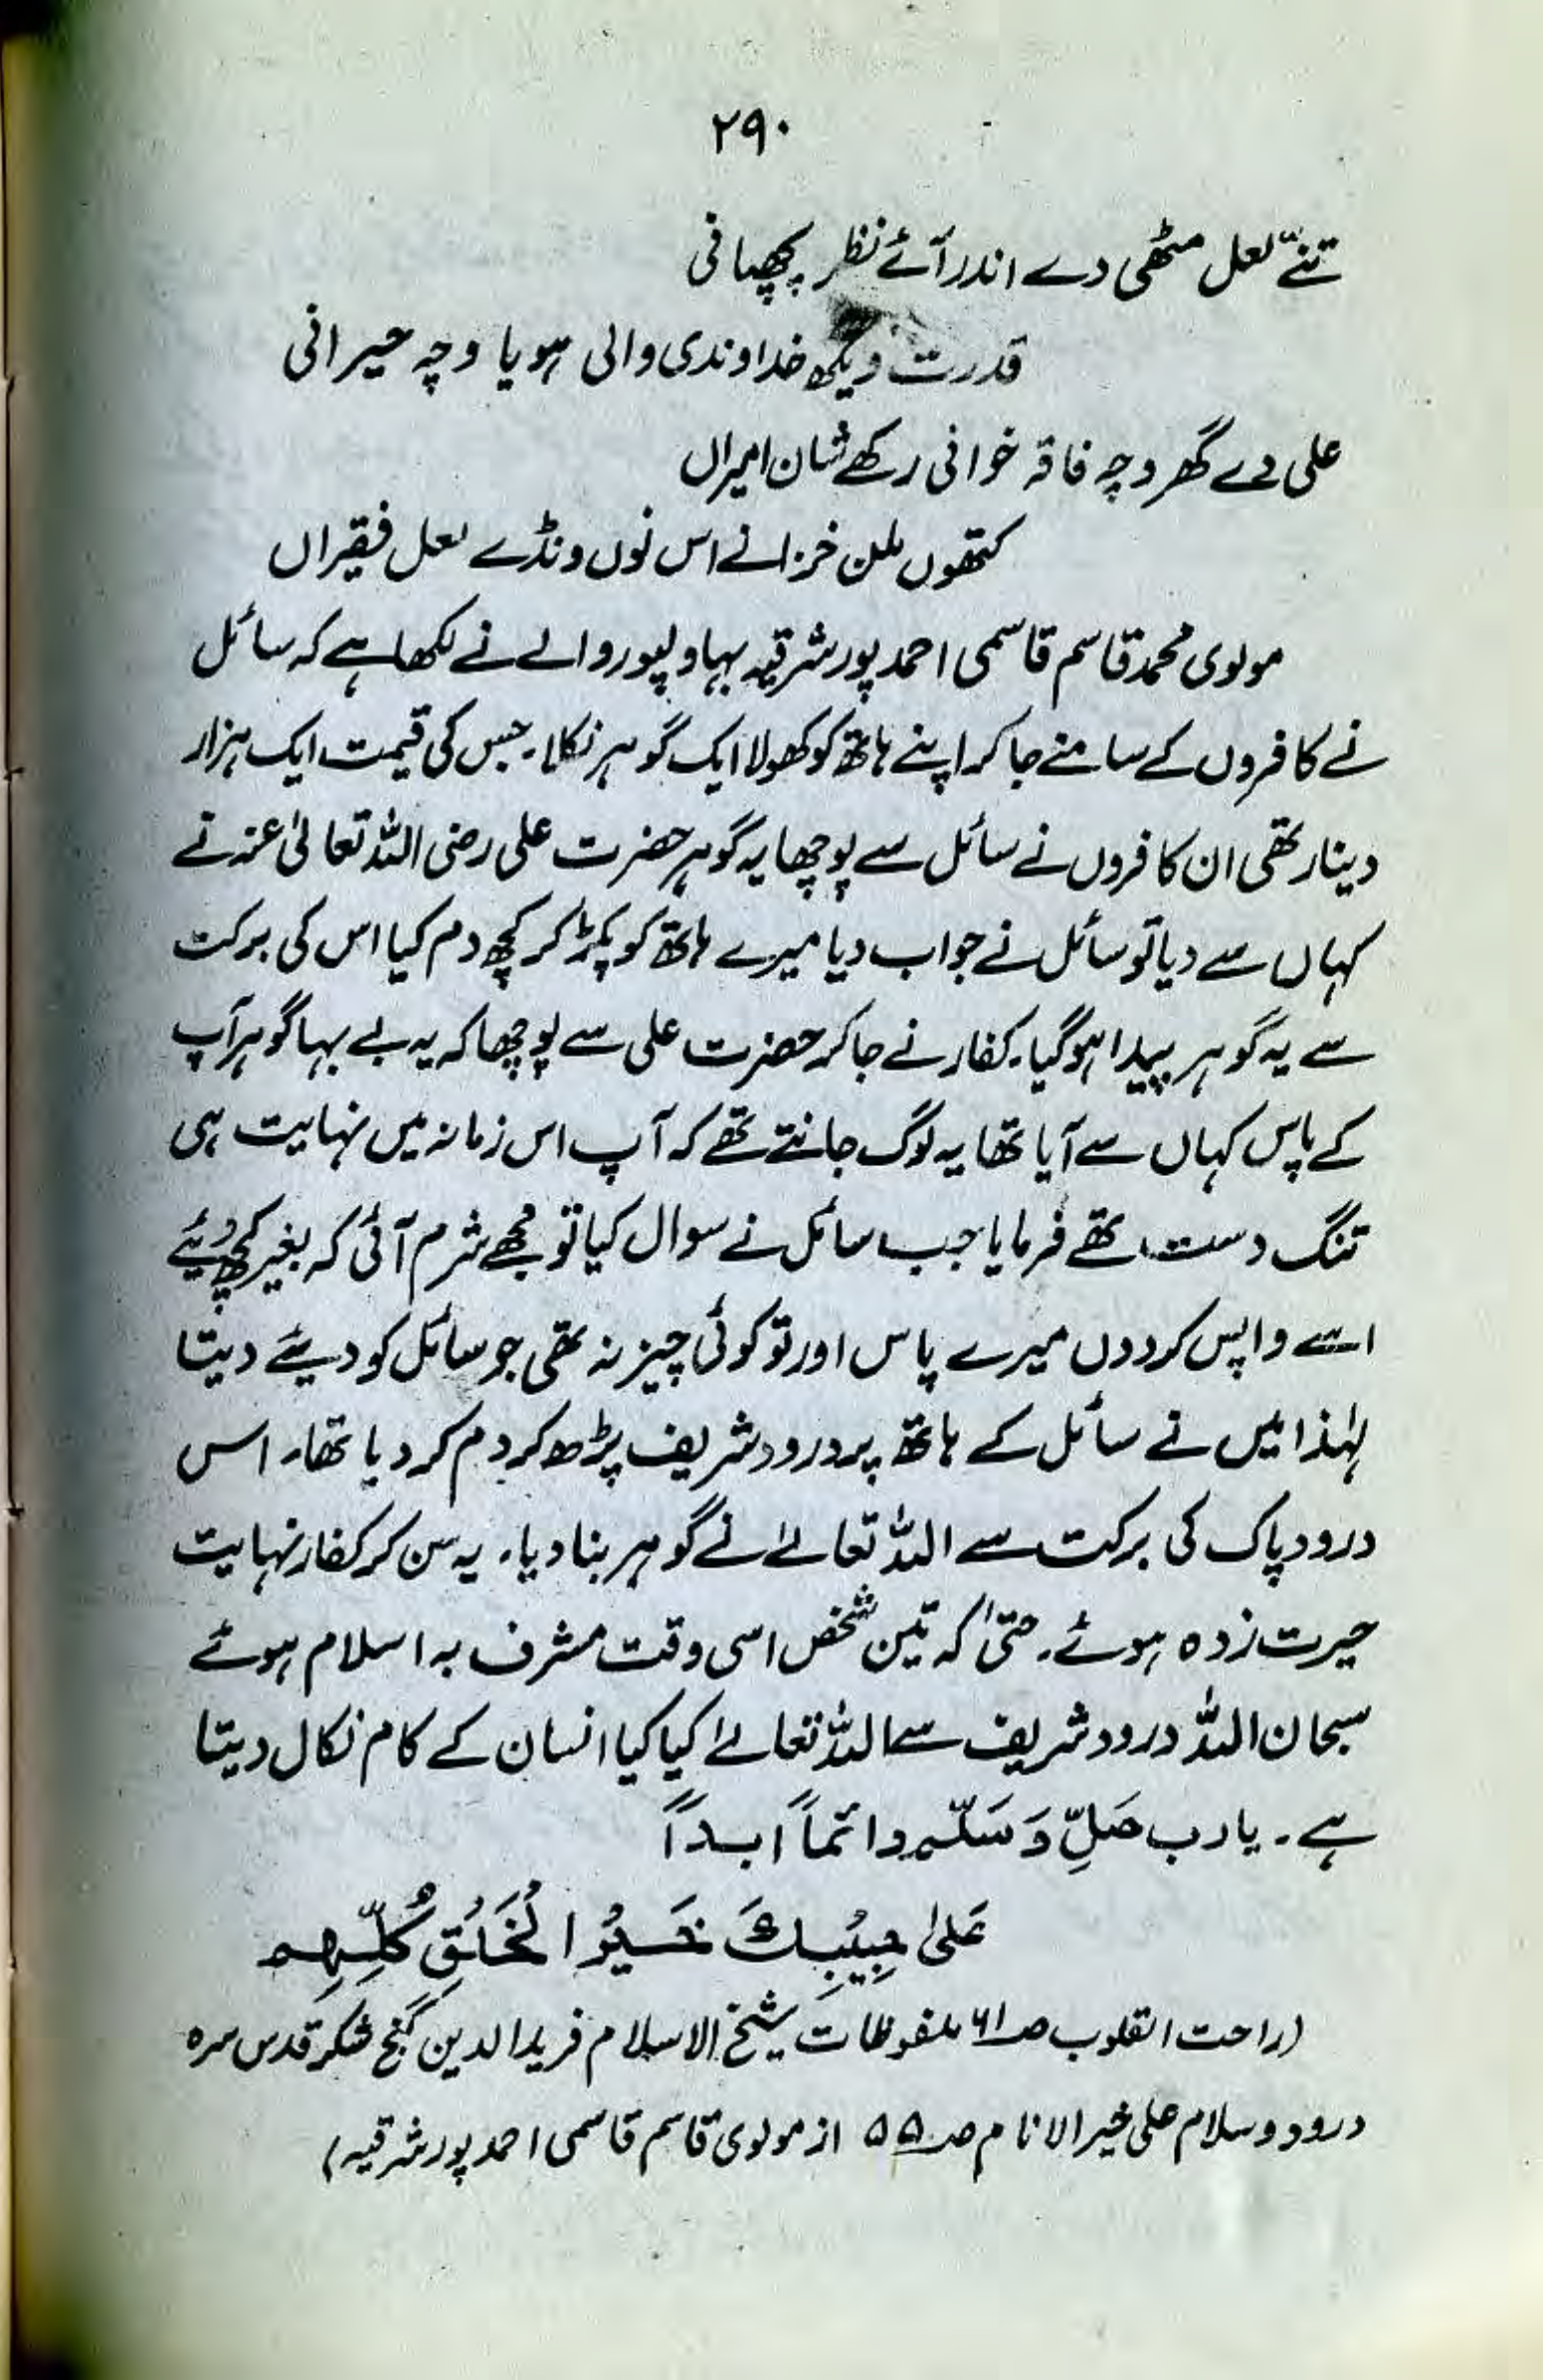 ۲۹۰
تنّے لعل مٹھی دے اندر آئے نظر پچھپانی
قدرت ویکھ خداوندی والی ہویا وچہ حیرانی
علی دے گھر وچہ فاقہ خوانی رکھے شان امیراں
کتھوں ملن خزانے اس نوں ونڈے لعل فقیراں
مولوی محمد قاسم قاسمی احمد پور شرقیہ بہاولپور والے نے لکھا ہے کہ سائل
نے کافروں کے سامنے جا کر اپنے ہاتھ کو کھولا ایک گوہر نکلا۔ جس کی قیمت ایک ہزار
دینار تھی ان کافروں نے سائل سے پوچھا یہ گوہر حضرت علی رضی اللہ تعالیٰ عنہ نے
کہاں سے دیا تو سائل نے جواب دیا میرے ہاتھ کو پکڑ کر کچھ دم کیا اس کی برکت
سے یہ گوہر پیدا ہو گیا۔ کفار نے جا کر حضرت علی سے پوچھا کہ یہ بے بہا گوہر آپ
کے پاس کہاں سے آیا تھا یہ لوگ جانتے تھے کہ آپ اس زمانہ میں نہایت ہی
تنگ دست تھے فرمایا جب سائل نے سوال کیا تو مجھے شرم آئی کہ بغیر کچھ دیئے
اسے واپس کردوں میرے پاس اور تو کوئی چیز نہ تھی جو سائل کو دیئے دیتا
لہٰذا میں نے سائل کے ہاتھ پر درود شریف پڑھ کر دم کر دیا تھا۔ اس
درود پاک کی برکت سے اللہ تعالےٰ نے گوہر بنا دیا۔ یہ سن کر کفار نہایت
حیرت زدہ ہوئے۔ حتیٰ کہ تین شخص اسی وقت مشرف بہ اسلام ہوئے
سبحان اللہ درود شریف سے اللہ تعالےٰ کیا کیا انسان کے کام نکال دیتا
ہے۔ یارب صَلِّ وَسَلِّم دائماً ابداً
عَلیٰ حَبِیْبِكَ خَیْرِ الْخَلْقِ كُلِّهِم
(راحت القلوب صـ۶۱ ملفوظات شیخ الاسلام فرید الدین گنج شکر قدس سرہ
درود وسلام علی خیر الانام صـ۵۵ از مولوی قاسم قاسمی احمد پور شرقیہ)